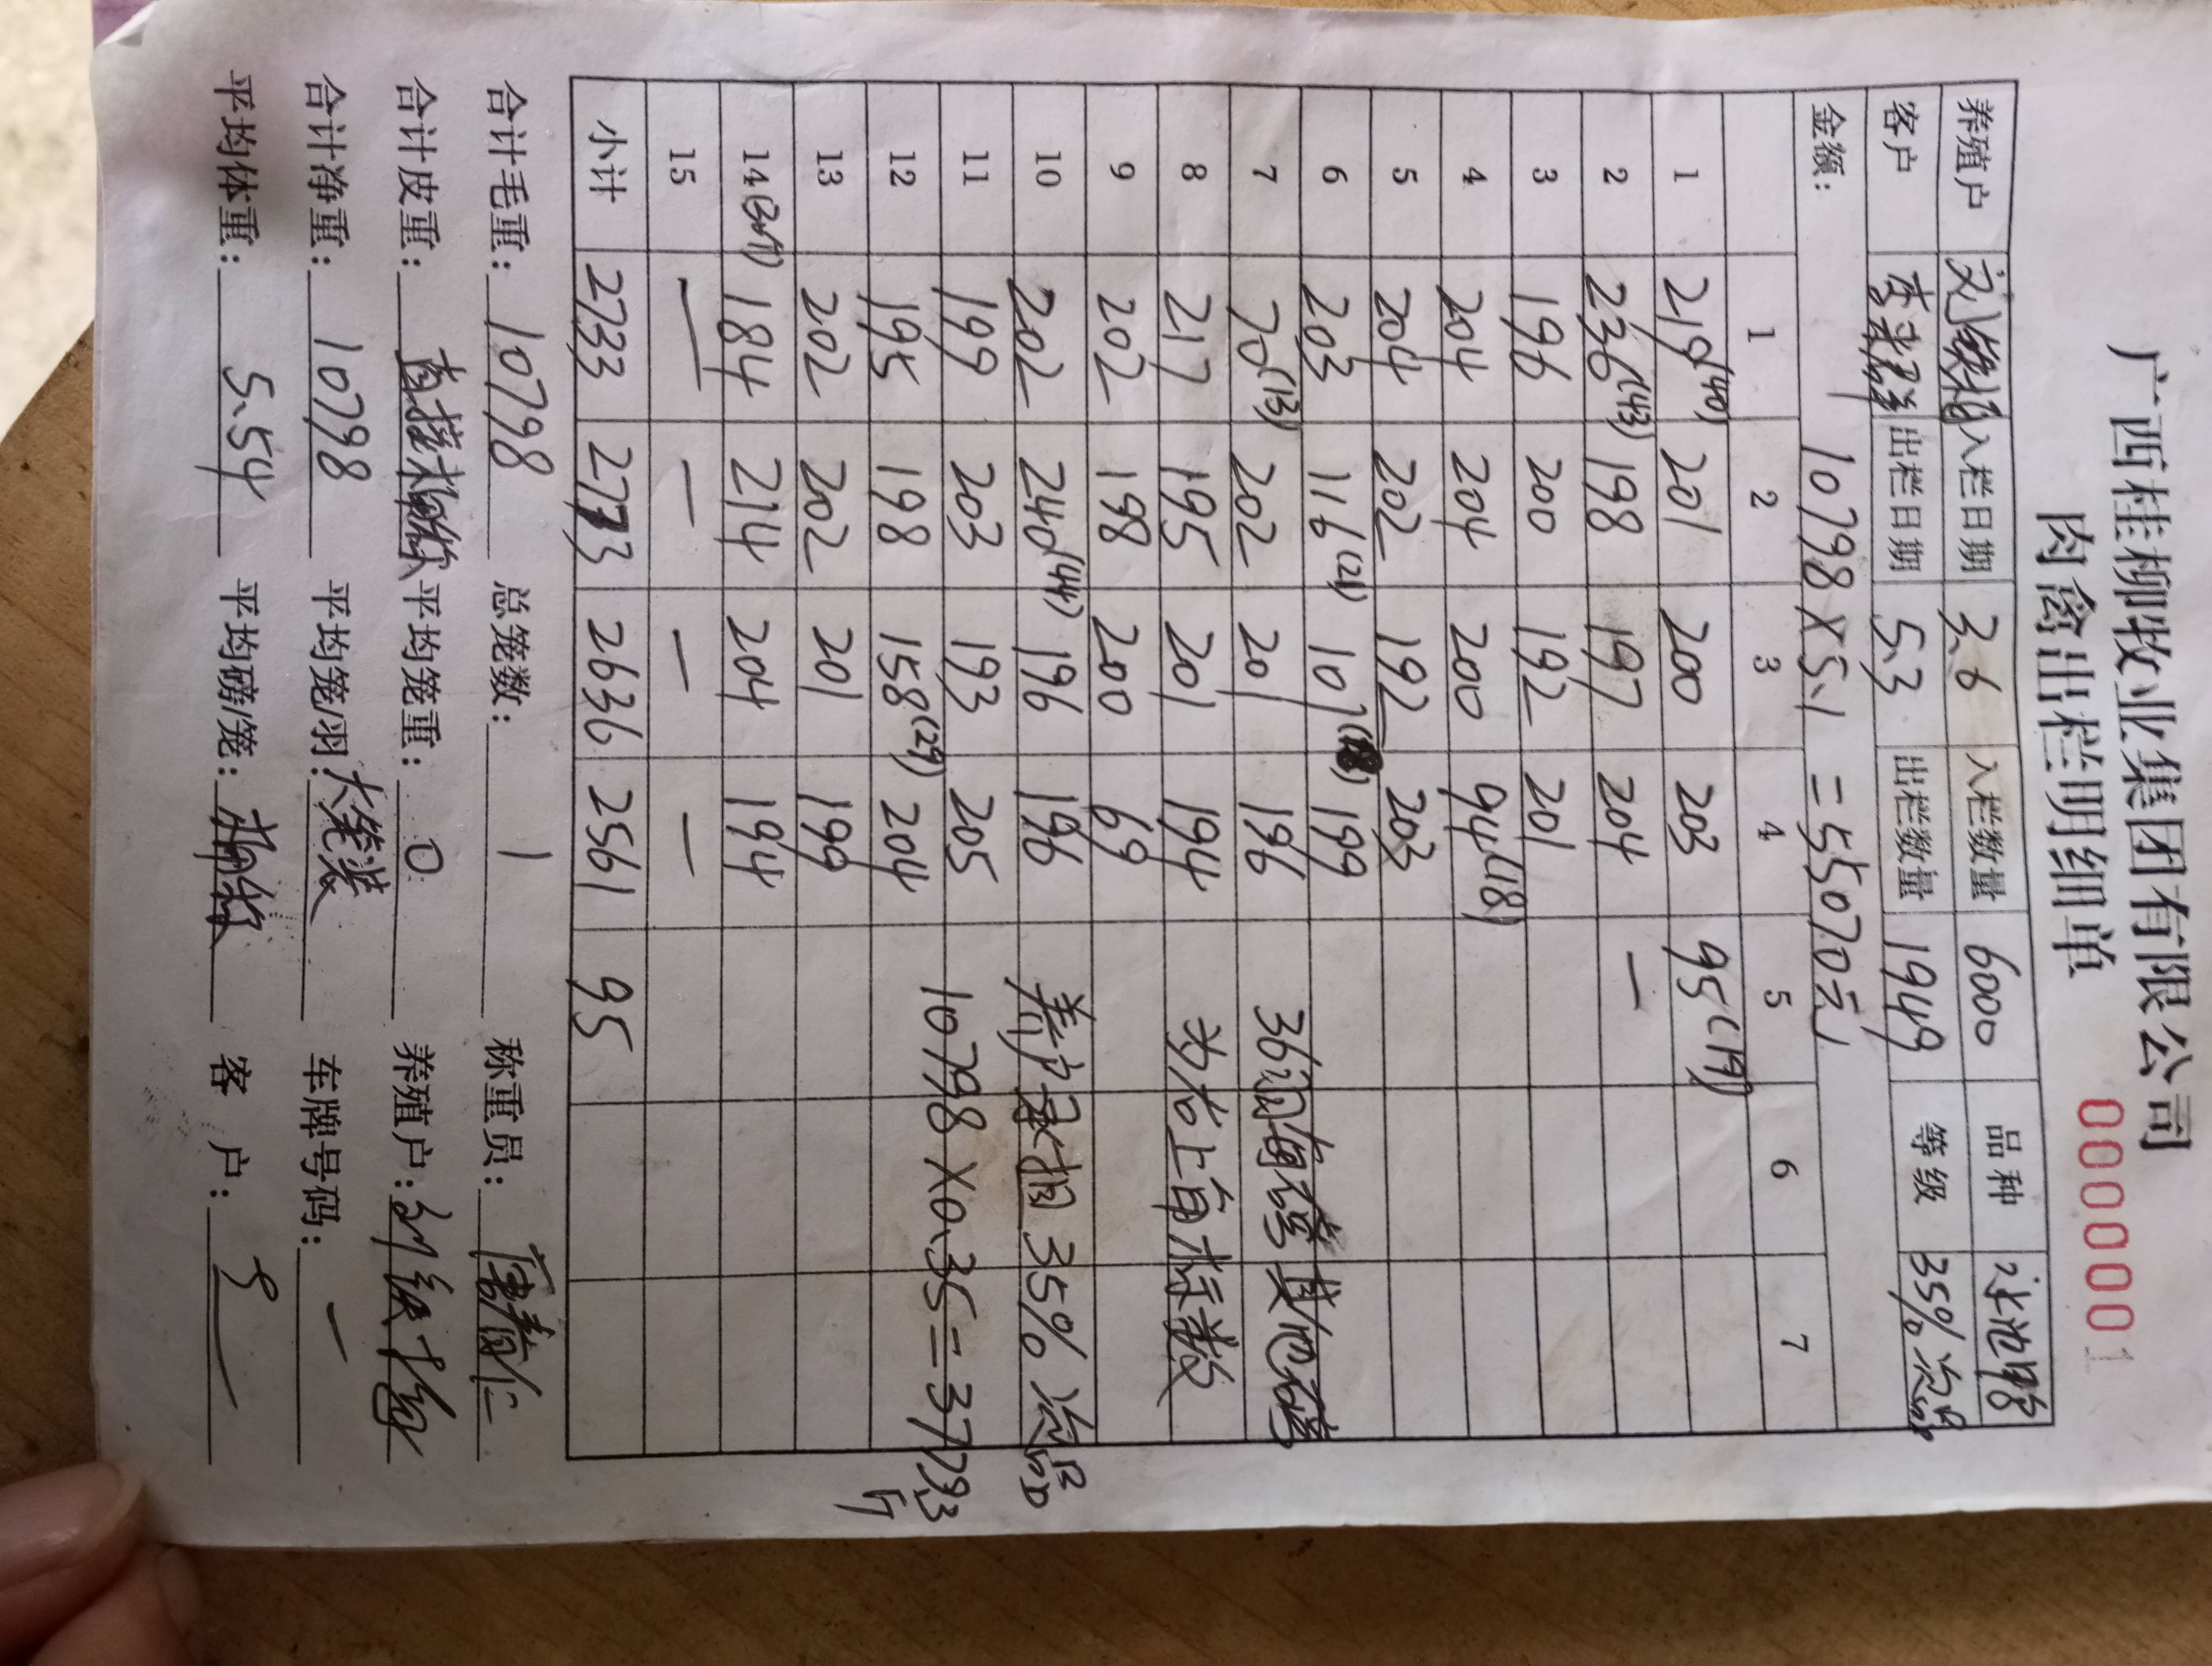 广西桂柳牧业集团有限公司
肉禽出栏明细单 00000001
养殖户 入栏日期 3.6 入栏数量 6000 品种
客户 出栏日期 5.3 出栏数量 1949 等级 35%次品
金额: 10798×5.1=55070元
1 2 3 4 5 6 7
1 219(40) 201 200 203 95(19)
2 236(43) 198 197 204 —
3 196 200 192 201
4 204 204 200 94(18)
5 204 202 192 203
6 203 116(21) 107(18) 199
7 70(13) 202 201 196 36 其他磅
8 217 195 201 194 为右上角标数
9 202 198 200 69
10 202 240(44) 196 196 养户承担35%次品
11 199 203 193 205
12 195 198 158(29) 204 10798×0.35=3779.3斤
13 202 202 201 199
14 184 214 204 194
15 — — — —
小计 2733 2773 2636 2561 95
合计毛重: 10798 总笼数: 1 称重员:
合计皮重: 平均笼重: 0 养殖户:
合计净重: 10798 平均笼/羽: 大笼装 车牌号码: —
平均体重: 5.54 平均磅/笼: 客户: